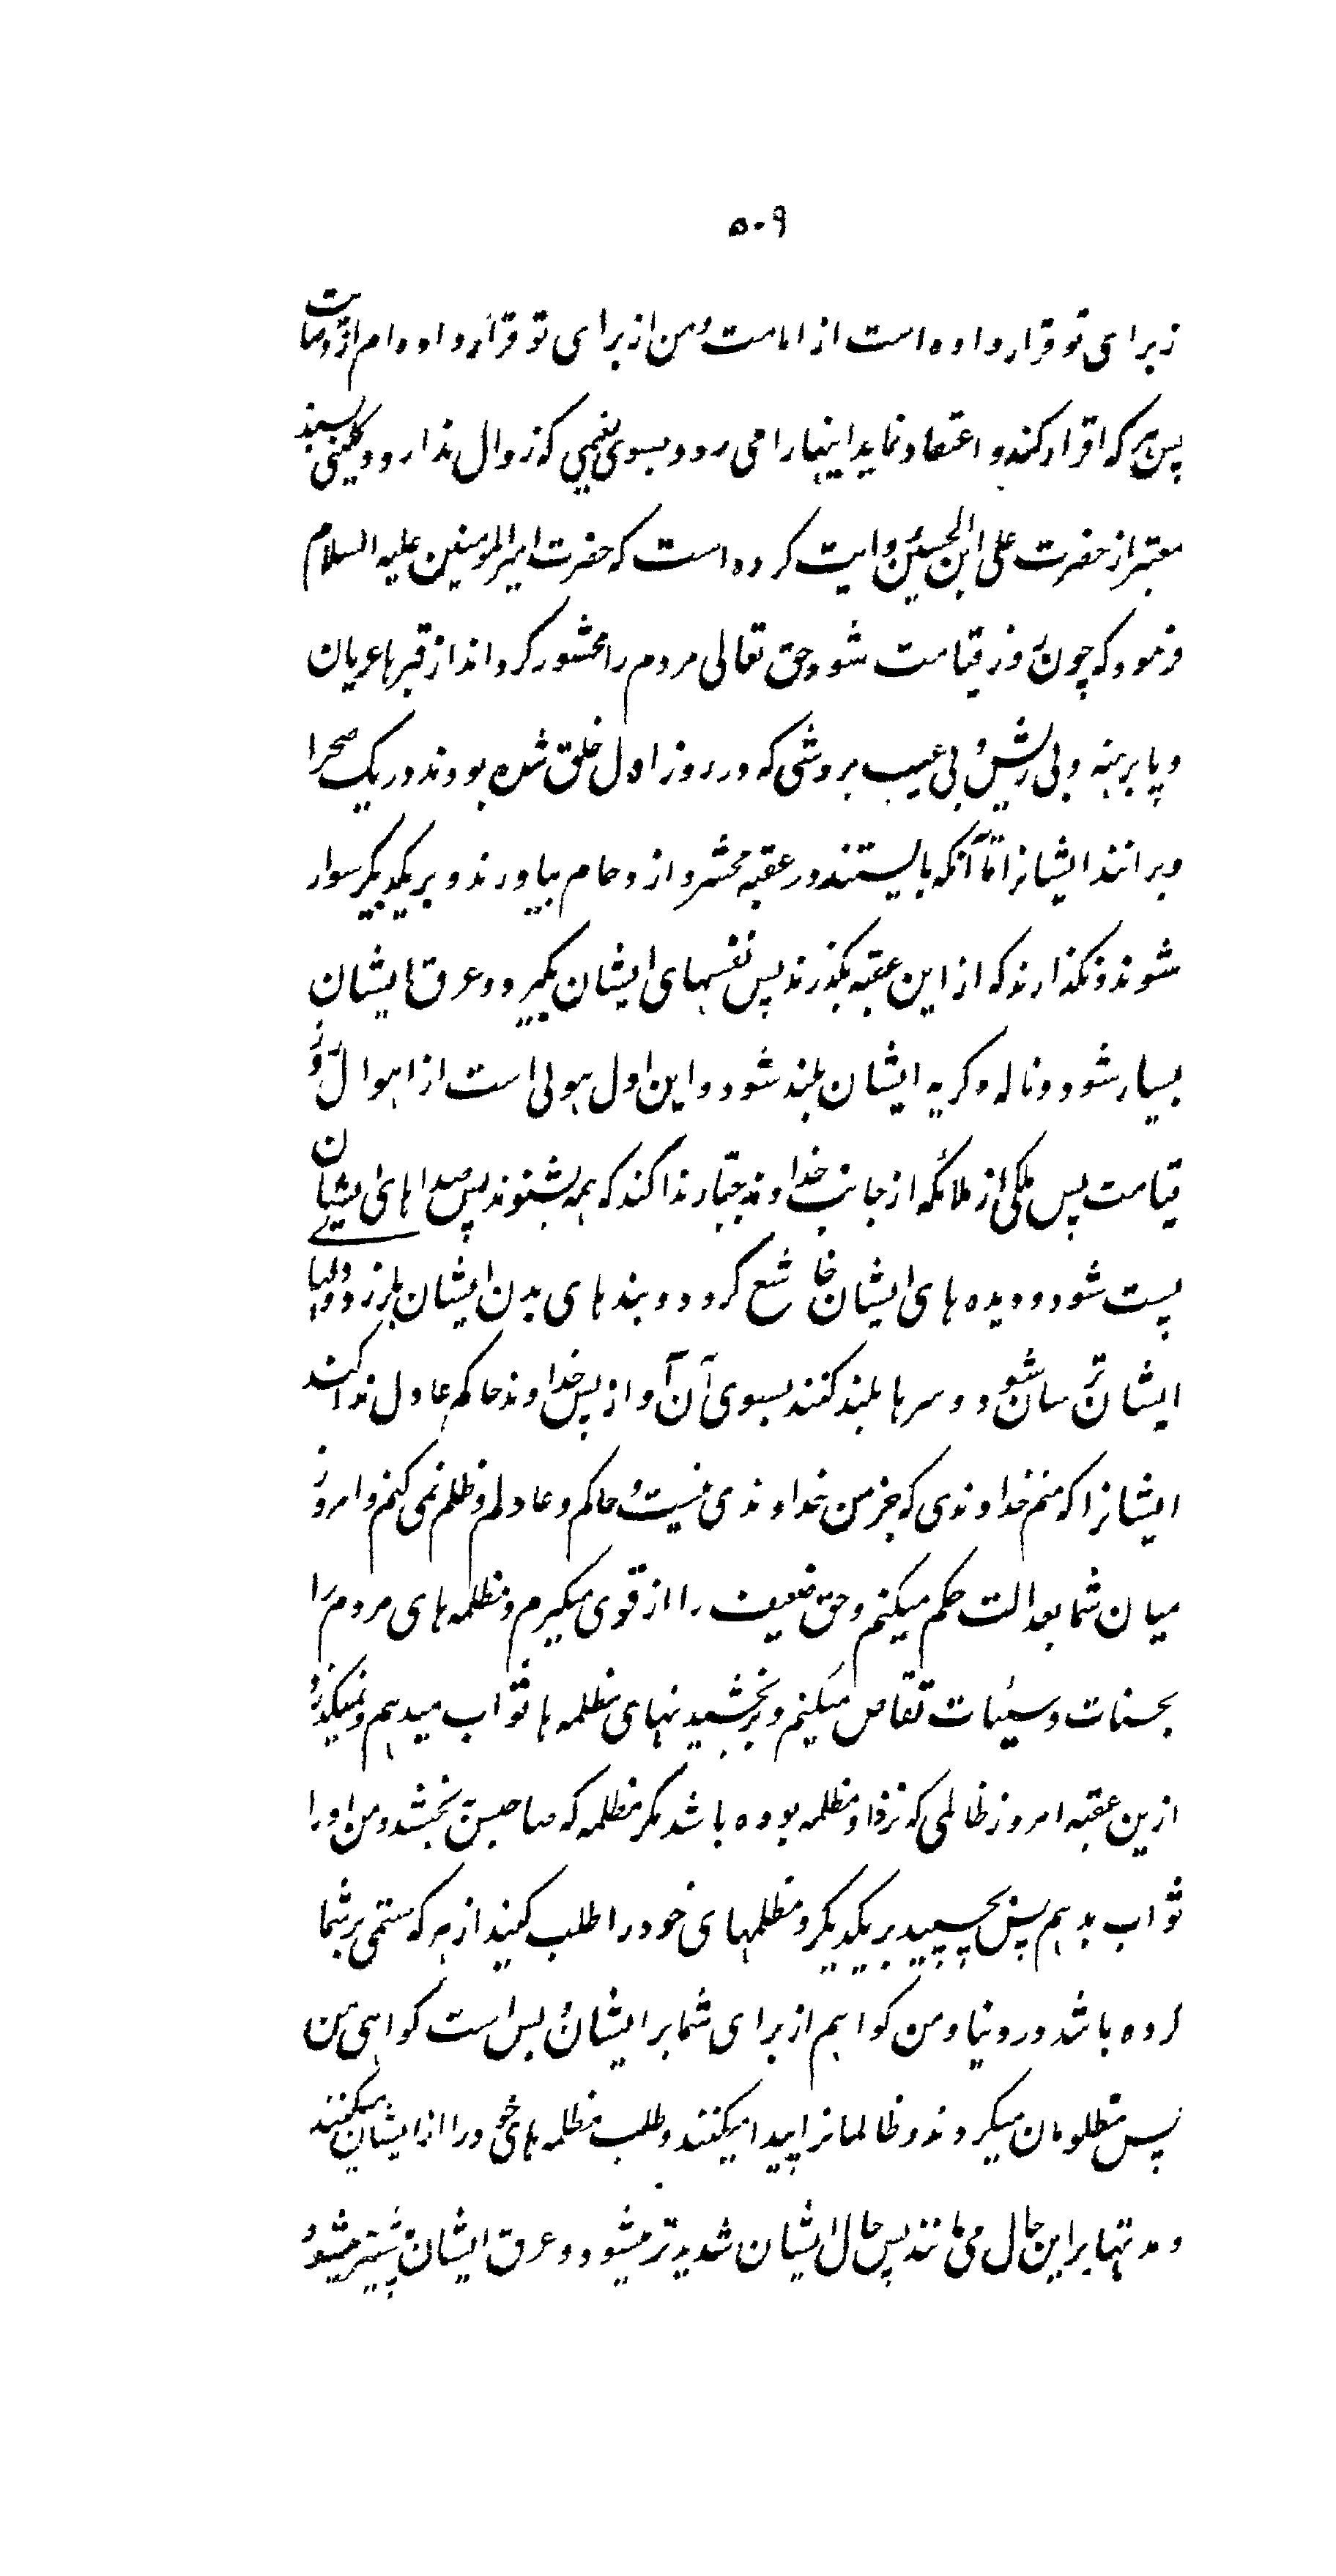 ۵۰۹
زبرای تو قرار داده است از امامت و من از برای تو قرار داده ام از وصایت
پس هر که اقرار کند و اعتقاد نماید اینها را می رود بسوی نعیمی که زوال ندارد و کلینی بسند
معتبر از حضرت علی ابن الحسین روایت کرده است که حضرت امیر المومنین علیه السلام
فرمود که چون روز قیامت شود حق تعالی مردم را محشور گرداند از قبرها عریان
و پا برهنه و بی ریش و بی عیب بروشی که در روز اول خلق شده بودند در یک صحرا
و برانند ایشانرا تا آنکه بایستند در عقبه محشر و ازدحام بیاورند و بر یکدیگر سوار
شوند و نگذارند که از این عقبه بگذرند پس نفسهای ایشان بگیرد و عرق هایشان
بسیار شود و ناله و گریه ایشان بلند شود و این اول هولی است از اهوال روز
قیامت پس ملکی از ملائکه از جانب خداوند جبار ندا کند که همه بشنوند پس صداهای ایشان
پست شود و دیده های ایشان خاشع گردد و بندهای بدن ایشان بلرزد و دلها
ایشان ترسان شود و سرها بلند کنند بسوی آن آواز پس خداوند حاکم عادل ندا کند
ایشانرا که منم خداوندی که جز من خداوندی نیست و حاکم و عادلم و ظلم نمی کنم و امروز
میان شما بعدالت حکم میکنم و حق ضعیف را از قوی میگیرم و مظلمه های مردم را
بحسنات و سیئات تقاص میکنم و بر بخشیدنهای مظلمه ها ثواب میدهم و نمیگذرد
ازین عقبه امروز ظالمی که نزد او مظلمه بوده باشد مگر مظلمه که صاحبش بخشد و من او را
ثواب بدهم پس بچسپید بر یکدیگر و مظلمهای خود را طلب کنید از هر که ستمی بر شما
کرده باشد در دنیا و من گواهم از برای شما بر ایشان و بس است گواهی من
پس مظلومان میگردند و ظالمانرا پیدا میکنند و طلب مظلمه های خود را از ایشان میکنند
و مدتها بر این حال می مانند پس حال ایشان شدید تر میشود و عرق ایشان بیشتر میشود